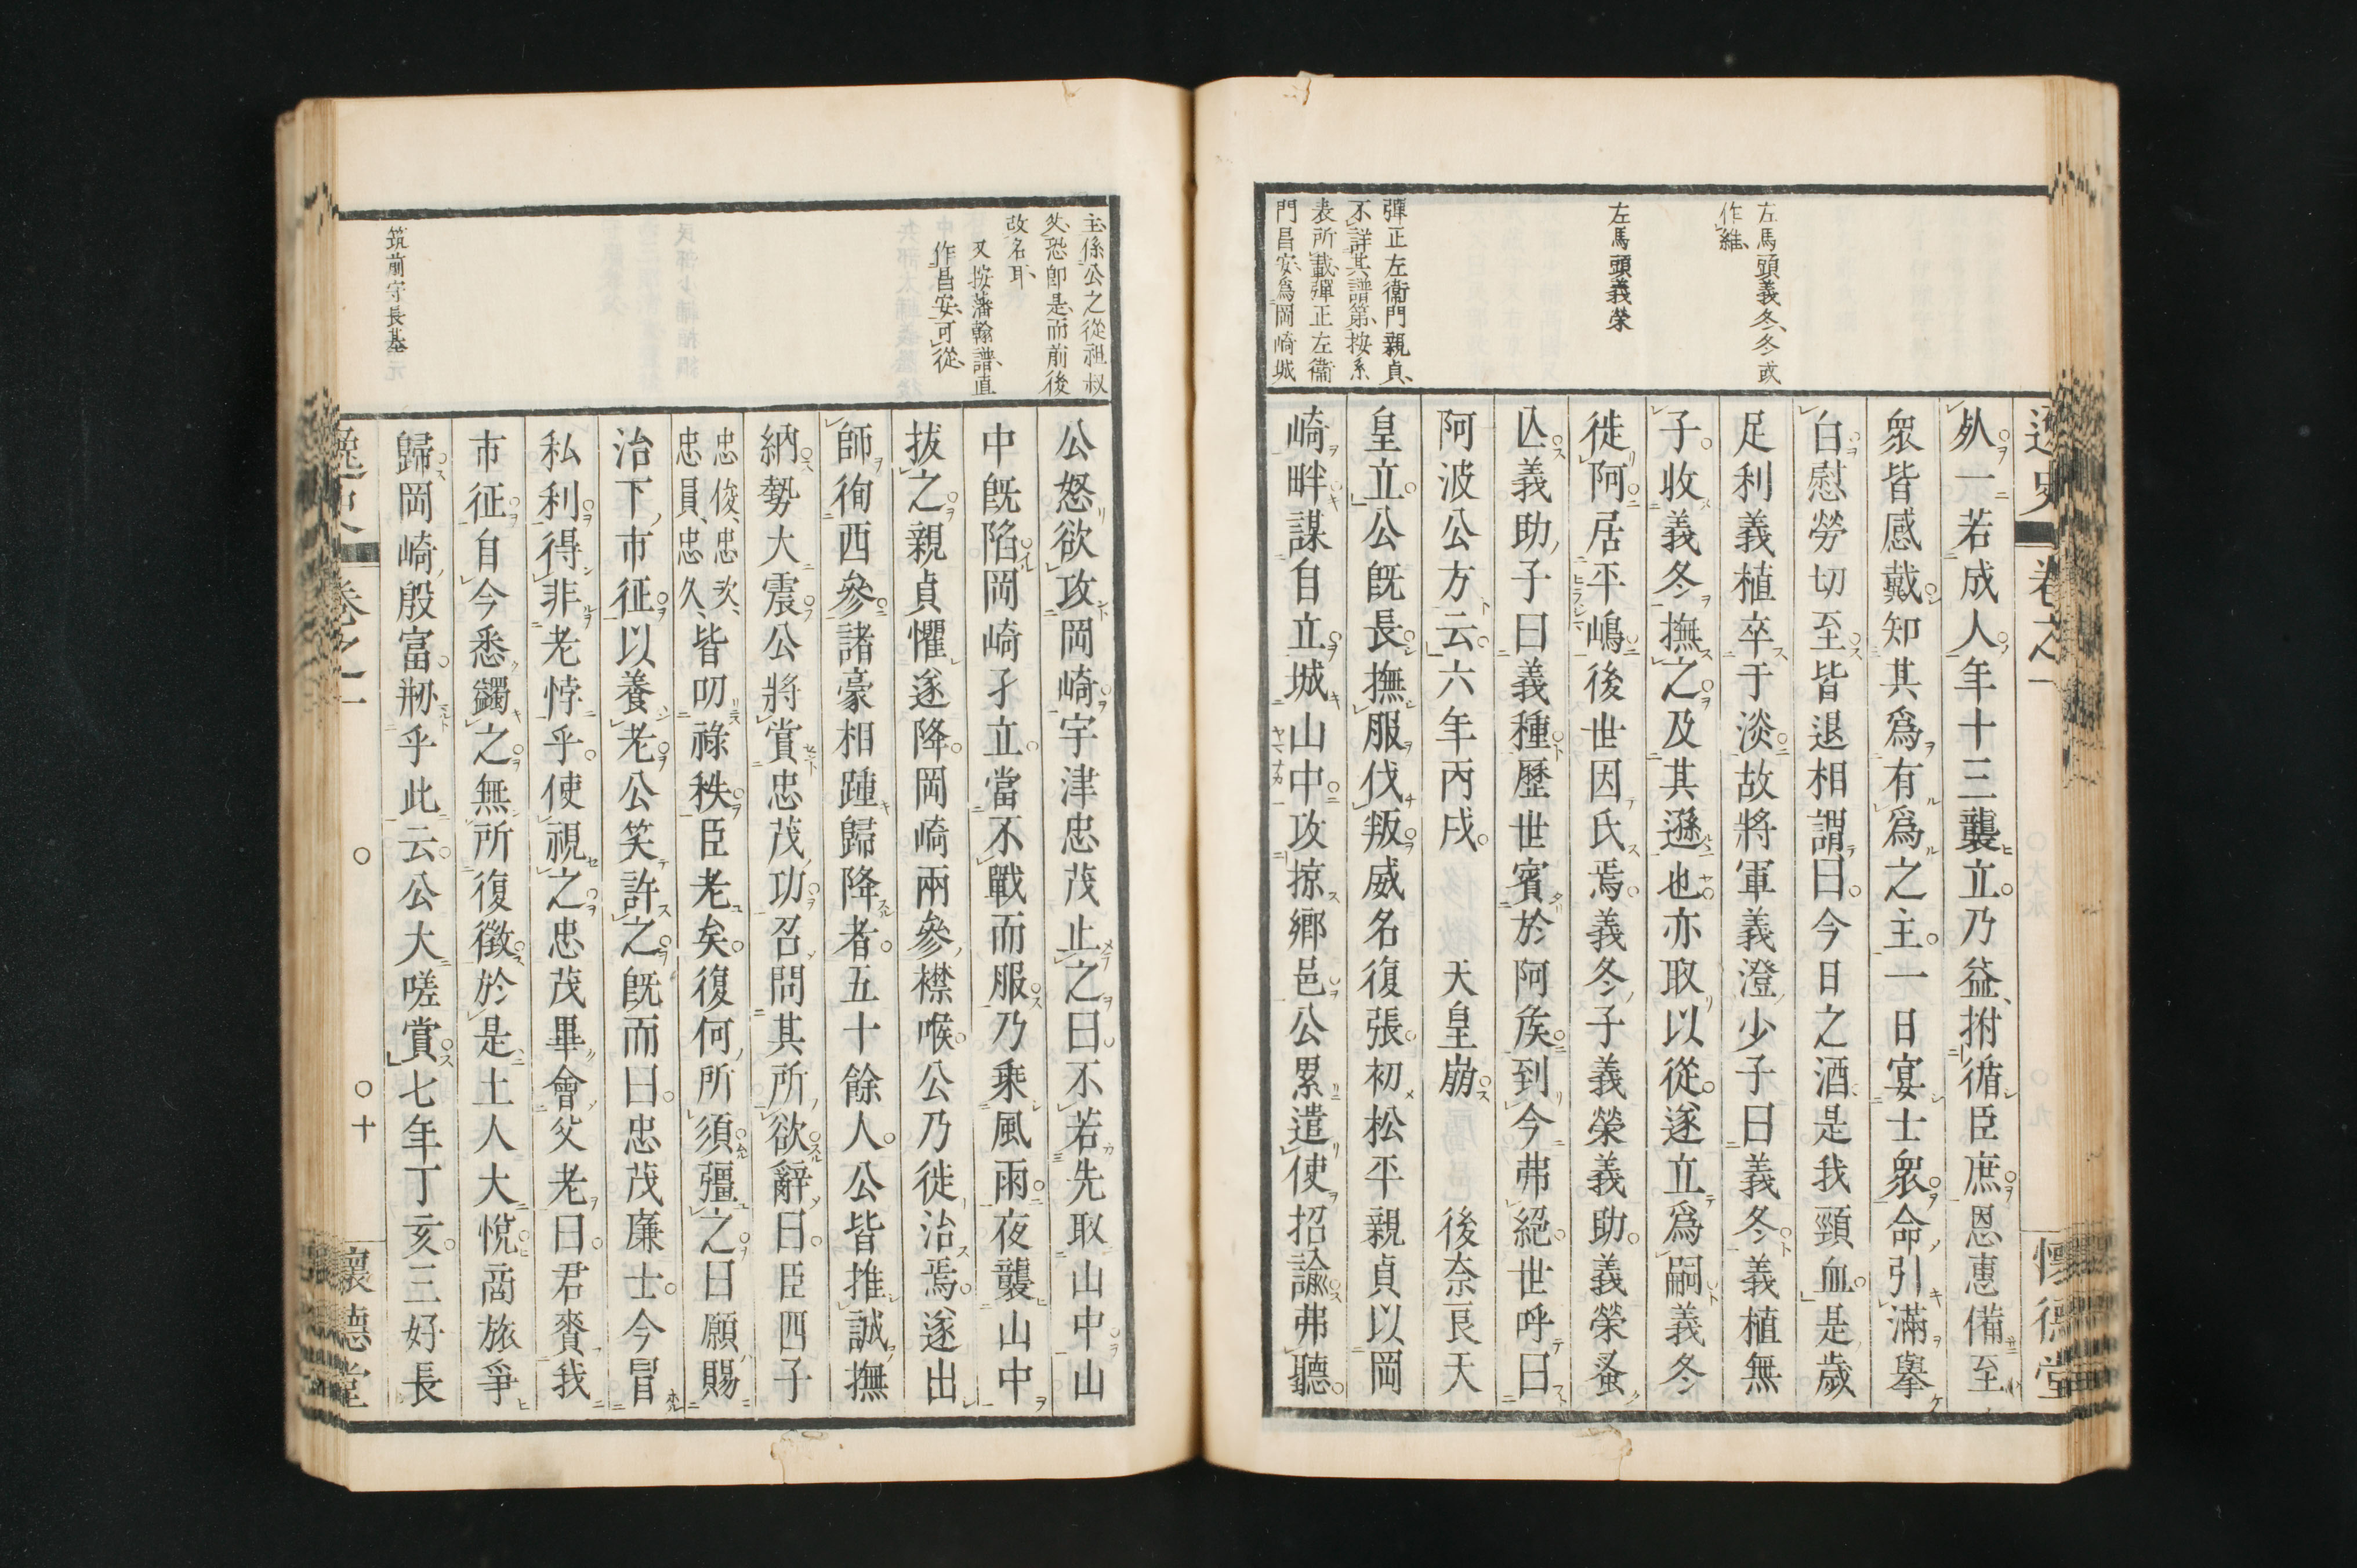 逸史 卷之一 懷德堂
左馬頭義冬、冬或
作維、
左馬頭義榮
彈正左衞門親貞、
不詳其譜第、按系
表所載、彈正左衞
門昌安、爲岡崎城
从一若成人年十三襲立乃益拊循臣庶恩惠備至
衆皆感戴知其爲有爲之主一日宴士衆命引滿擧
白慰勞切至皆退相謂曰今日之酒是我頸血是歲
足利義植卒于淡故將軍義澄少子曰義冬義植無
子收義冬撫之及其遜也亦取以從遂立爲嗣義冬
徙阿居平嶋後世因氏焉義冬子義榮義助義榮蚤
亾義助子曰義種歷世賓於阿矦到今弗絕世呼曰
阿波公方云六年丙戌 天皇崩 後奈良天
皇立公旣長撫服伐叛威名復張初松平親貞以岡
崎畔謀自立城山中攻掠鄉邑公累遣使招諭弗聽
主、係公之從祖叔
父、恐卽是、而前後
改名耳、
又按藩翰譜、直
作昌安、可從、
筑前守長基
公怒欲攻岡崎宇津忠茂止之曰不若先取山中山
中旣陷岡崎孑立當不戰而服乃乘風雨夜襲山中
拔之親貞懼遂降岡崎兩參襟喉公乃徙治焉遂出
師徇西參諸豪相踵歸降者五十餘人公皆推誠撫
納勢大震公將賞忠茂功召問其所欲辭曰臣四子
忠俊、忠次、
忠員、忠久、
皆叨祿秩臣老矣復何所須彊之曰願賜
治下市征以養老公笑許之旣而曰忠茂廉士今冒
私利得非老悖乎使視之忠茂畢會父老曰君賚我
市征自今悉蠲之無所復徵於是土人大悅商旅爭
歸岡崎殷富刱乎此云公大嗟賞七年丁亥三好長
逸史 卷之一 ○ ○十 懷德堂